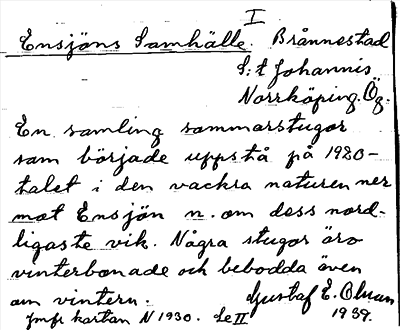 I
Ensjöns Samhälle. Brånnestad
S:t Johannis
Norrköping. Ög.
En samling sommarstugor
som började uppstå på 1920-
talet i den vackra naturen ner
mot Ensjön n. om dess nord-
ligaste vik. Några stugor äro
vinterbonade och bebodda även
om vintern. Gustaf E. Olsson
Jmfr kartan N 1930. Se II 1939.